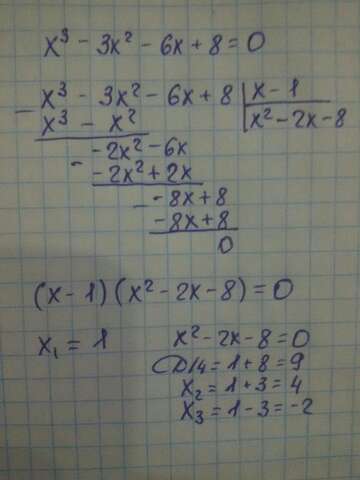 x³ - 3x² - 6x + 8 = 0
- x³ - 3x² - 6x + 8 | x - 1
x³ - x² | x² - 2x - 8
- -2x² - 6x
-2x² + 2x
- -8x + 8
-8x + 8
0
(x - 1)(x² - 2x - 8) = 0
x₁ = 1 x² - 2x - 8 = 0
D/4 = 1 + 8 = 9
x₂ = 1 + 3 = 4
x₃ = 1 - 3 = -2